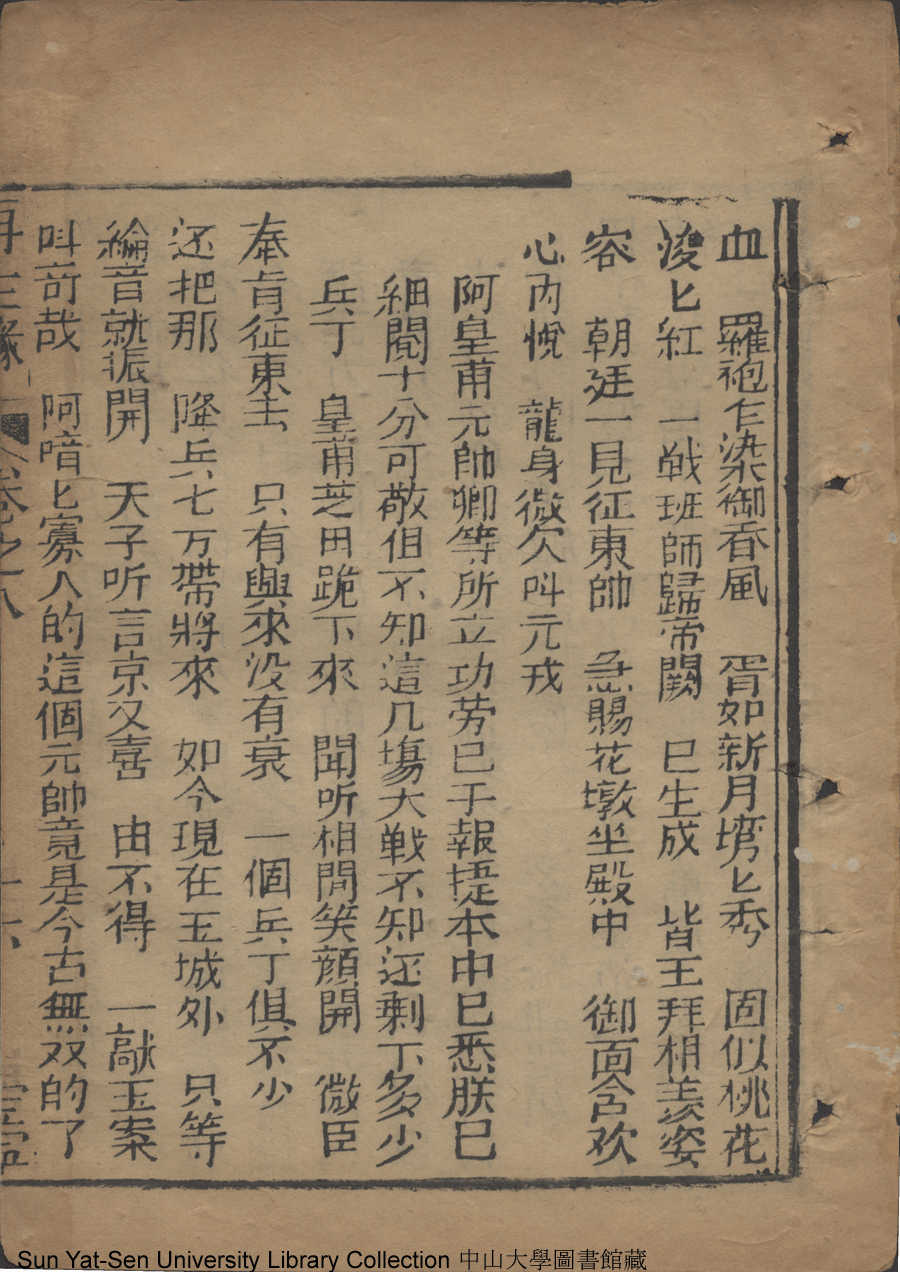 血　羅袍乍染御香風　胥如新月塆匕秀　固似桃花
浚匕紅　一戦班師歸帝闕　巳生成　皆王拜相羨姿
容　朝廷一見征東帥　急賜花墩坐殿中　御面含欢
心內悅　龍身微欠呌元戎
阿皇甫元帥卿等所立功劳巳于報提本中巳悉朕巳
細閱十分可敬但不知這几塲大戦不知还剩下多少
兵丁　皇甫芝田跪下來　聞听相問笑顔開　微臣
奉旨征東去　只有興來没有衰　一個兵丁俱不少
还把那　降兵七万帶將來　如今現在玉城外　只等
綸音就振開　天子听言京又喜　由不得　一敲玉案
呌奇哉　阿唷匕寡人的這個元帥竟是今古無双的了
再生緣　卷之八　十六　堂
Sun Yat-Sen University Library Collection 中山大學圖書館藏